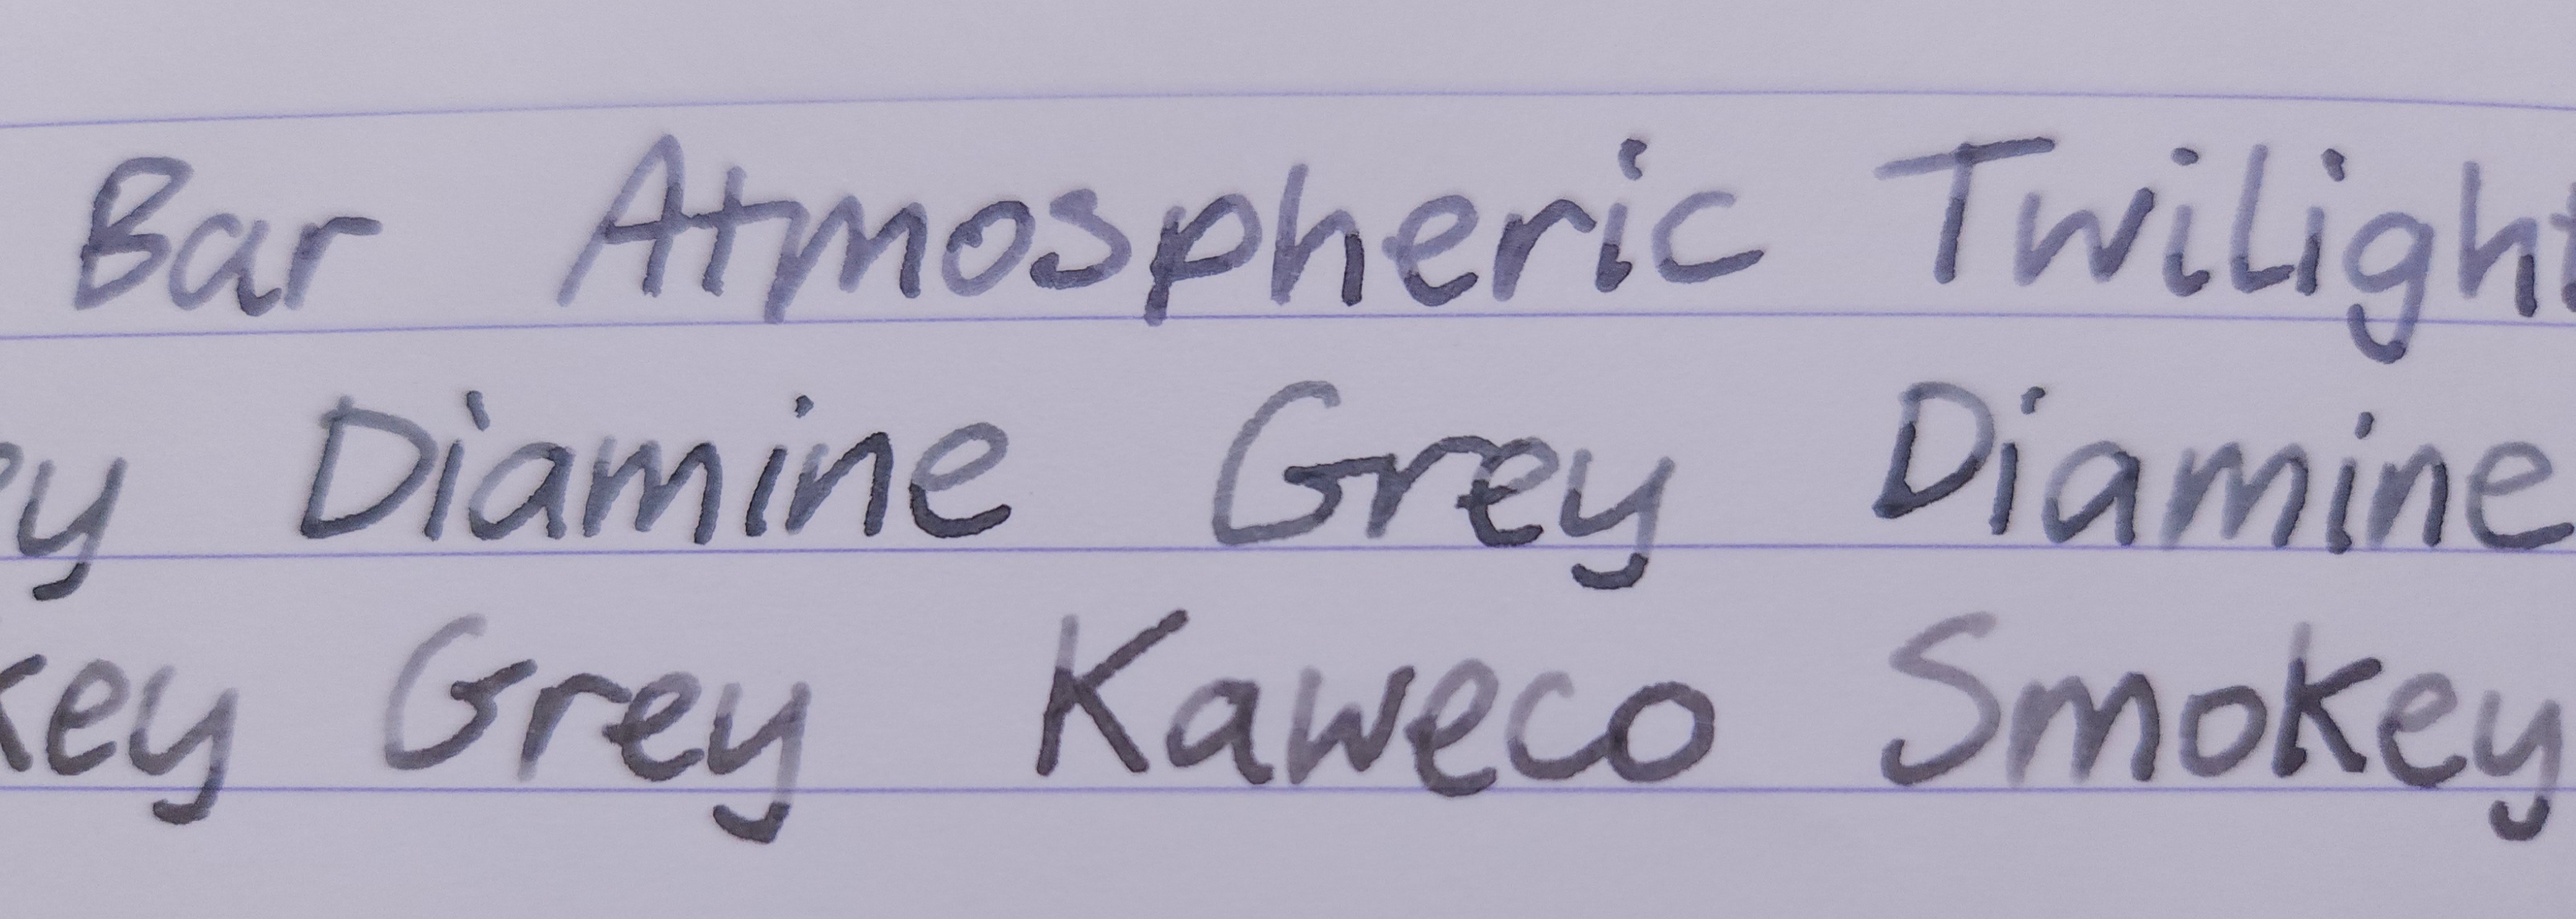 Bar Atmospheric Twilight
ey Diamine Grey Diamine
key Grey Kaweco Smokey